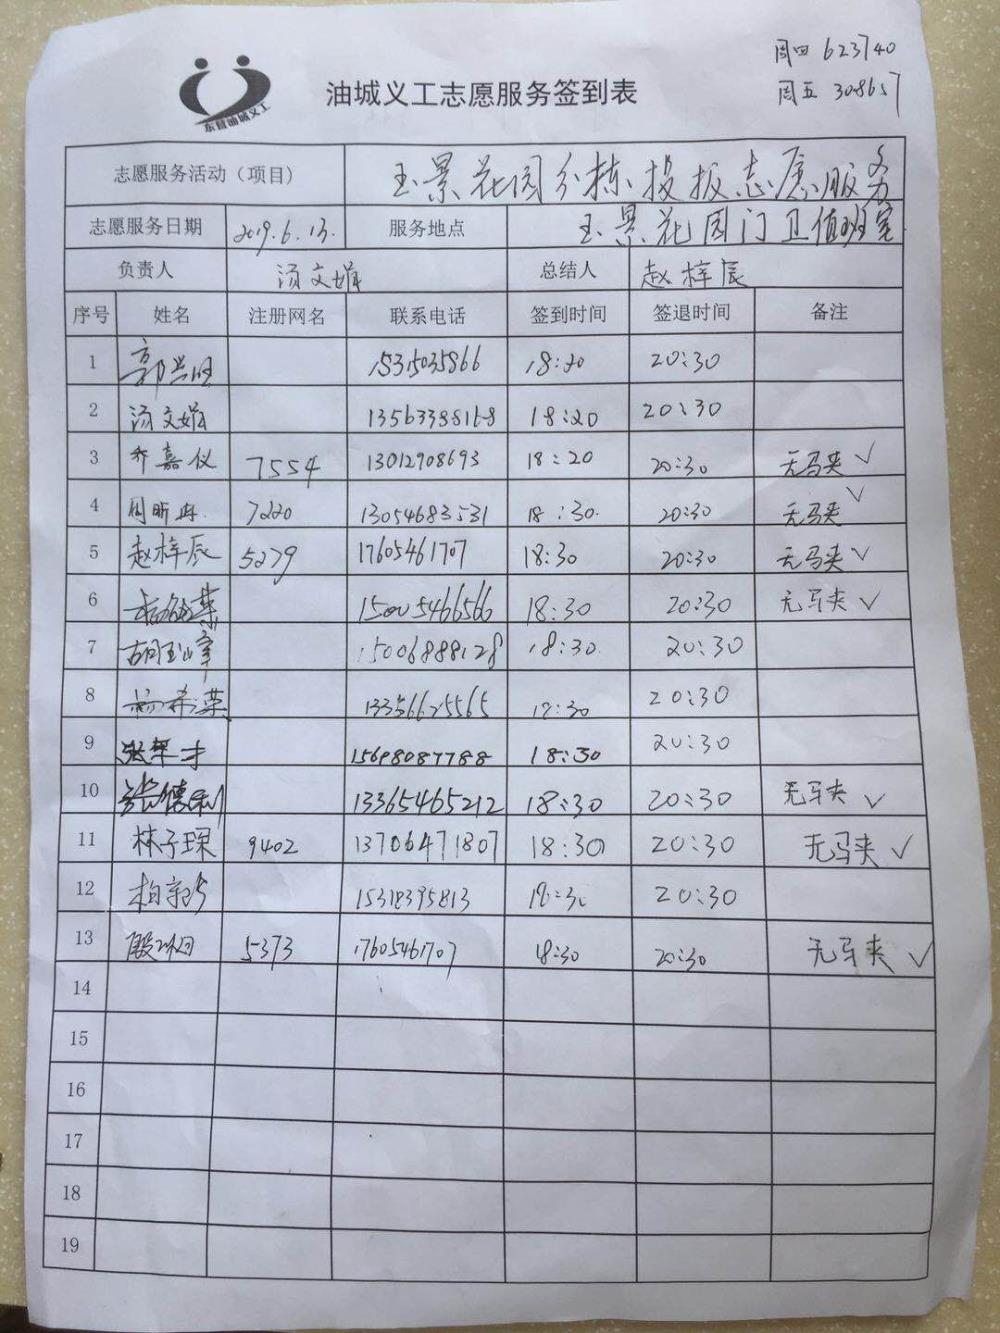 周四 623740
周五 308657
东营油城义工
油城义工志愿服务签到表
志愿服务活动（项目） 玉景花园分栋投放志愿服务
志愿服务日期 2019.6.13. 服务地点 玉景花园门卫值班室
负责人 汤文娟 总结人 赵梓辰
序号 姓名 注册网名 联系电话 签到时间 签退时间 备注
1 18:20 20:30
2 汤文娟 13563388168 18:20 20:30
3 乔嘉仪 7554 13012908693 18:20 20:30 无马夹 ✓
4 7220 13054683531 18:30. 20:30 无马夹 ✓
5 赵梓辰 5279 17605461707 18:30 20:30 无马夹 ✓
6 15005466566 18:30 20:30 无马夹 ✓
7 15006888128 18:30. 20:30
8 18:30 20:30
9 15698087788 18:30 20:30
10 张德利 13365465212 18:30 20:30 无马夹 ✓
11 林子琛 9402 13706471807 18:30 20:30 无马夹 ✓
12 15318395813 18:30 20:30
13 5373 17605461707 18:30 20:30 无马夹 ✓
14
15
16
17
18
19